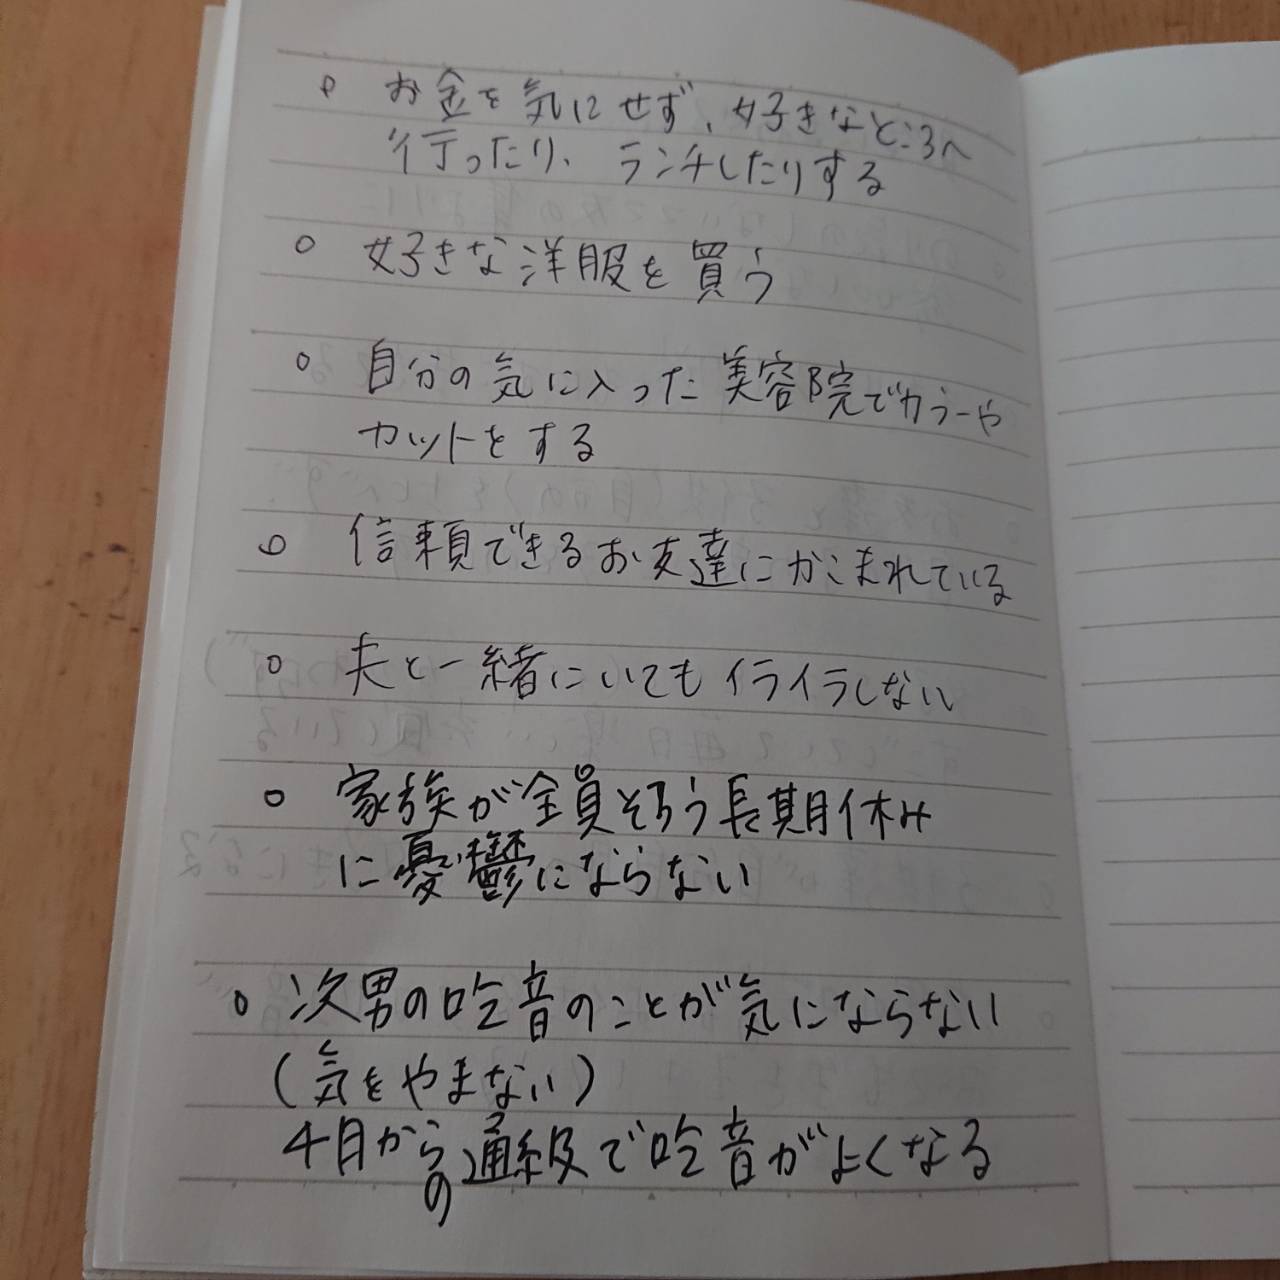 ○ お金を気にせず、好きなところへ
行ったり、ランチしたりする
○ 好きな洋服を買う
○ 自分の気に入った美容院でカラーや
カットをする
○ 信頼できるお友達にかこまれている
○ 夫と一緒にいてもイライラしない
○ 家族が全員そろう長期休み
に憂鬱にならない
○ 次男の吃音のことが気にならない
(気をやまない)
4月からの通級で吃音がよくなる